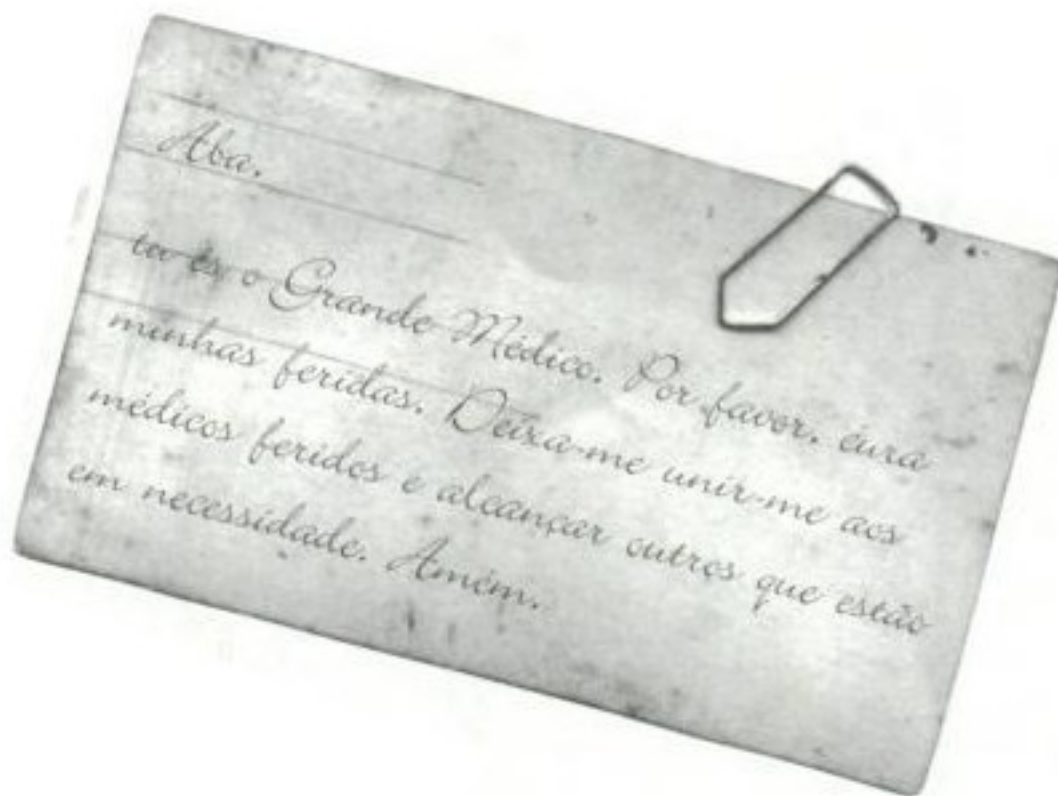 Aba,
tu és o Grande Médico. Por favor, cura
minhas feridas. Deixa-me unir-me aos
médicos feridos e alcançar outros que estão
em necessidade. Amém.